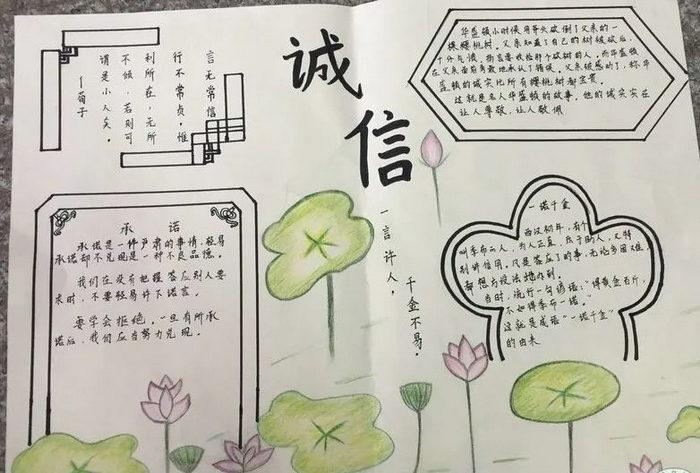 言无常信
行不常贞，惟
利所在，无所
不倾，若则可
谓是小人矣。
—荀子
诚信
华盛顿小时候用斧头砍倒了父亲的一
棵樱桃树。父亲知道了自己的树被砍后，
十分气愤，扬言要收拾那个砍树的人，而华盛顿
在父亲面前勇敢地承认了错误。父亲被感动了，称华
盛顿的诚实比所有樱桃树都宝贵。
这就是名人华盛顿的故事。他的诚实实在
让人尊敬，让人敬佩
一言许人，
千金不易。
承诺
承诺是一件严肃的事情，轻易
承诺却不兑现是一种不良品德。
我们在没有把握答应别人要
求时，不要轻易许下诺言。
要学会拒绝，一旦有所承
诺后，我们应当努力兑现。
一诺千金
西汉初年，有个
叫季布的人，为人正直，乐于助人，又特
别讲信用。凡是答应了的事，无论多困难，
都想方设法地办到。
当时，流行一句谚语："得黄金百斤，
不如得季布一诺。"
这就是成语"一诺千金"
的由来